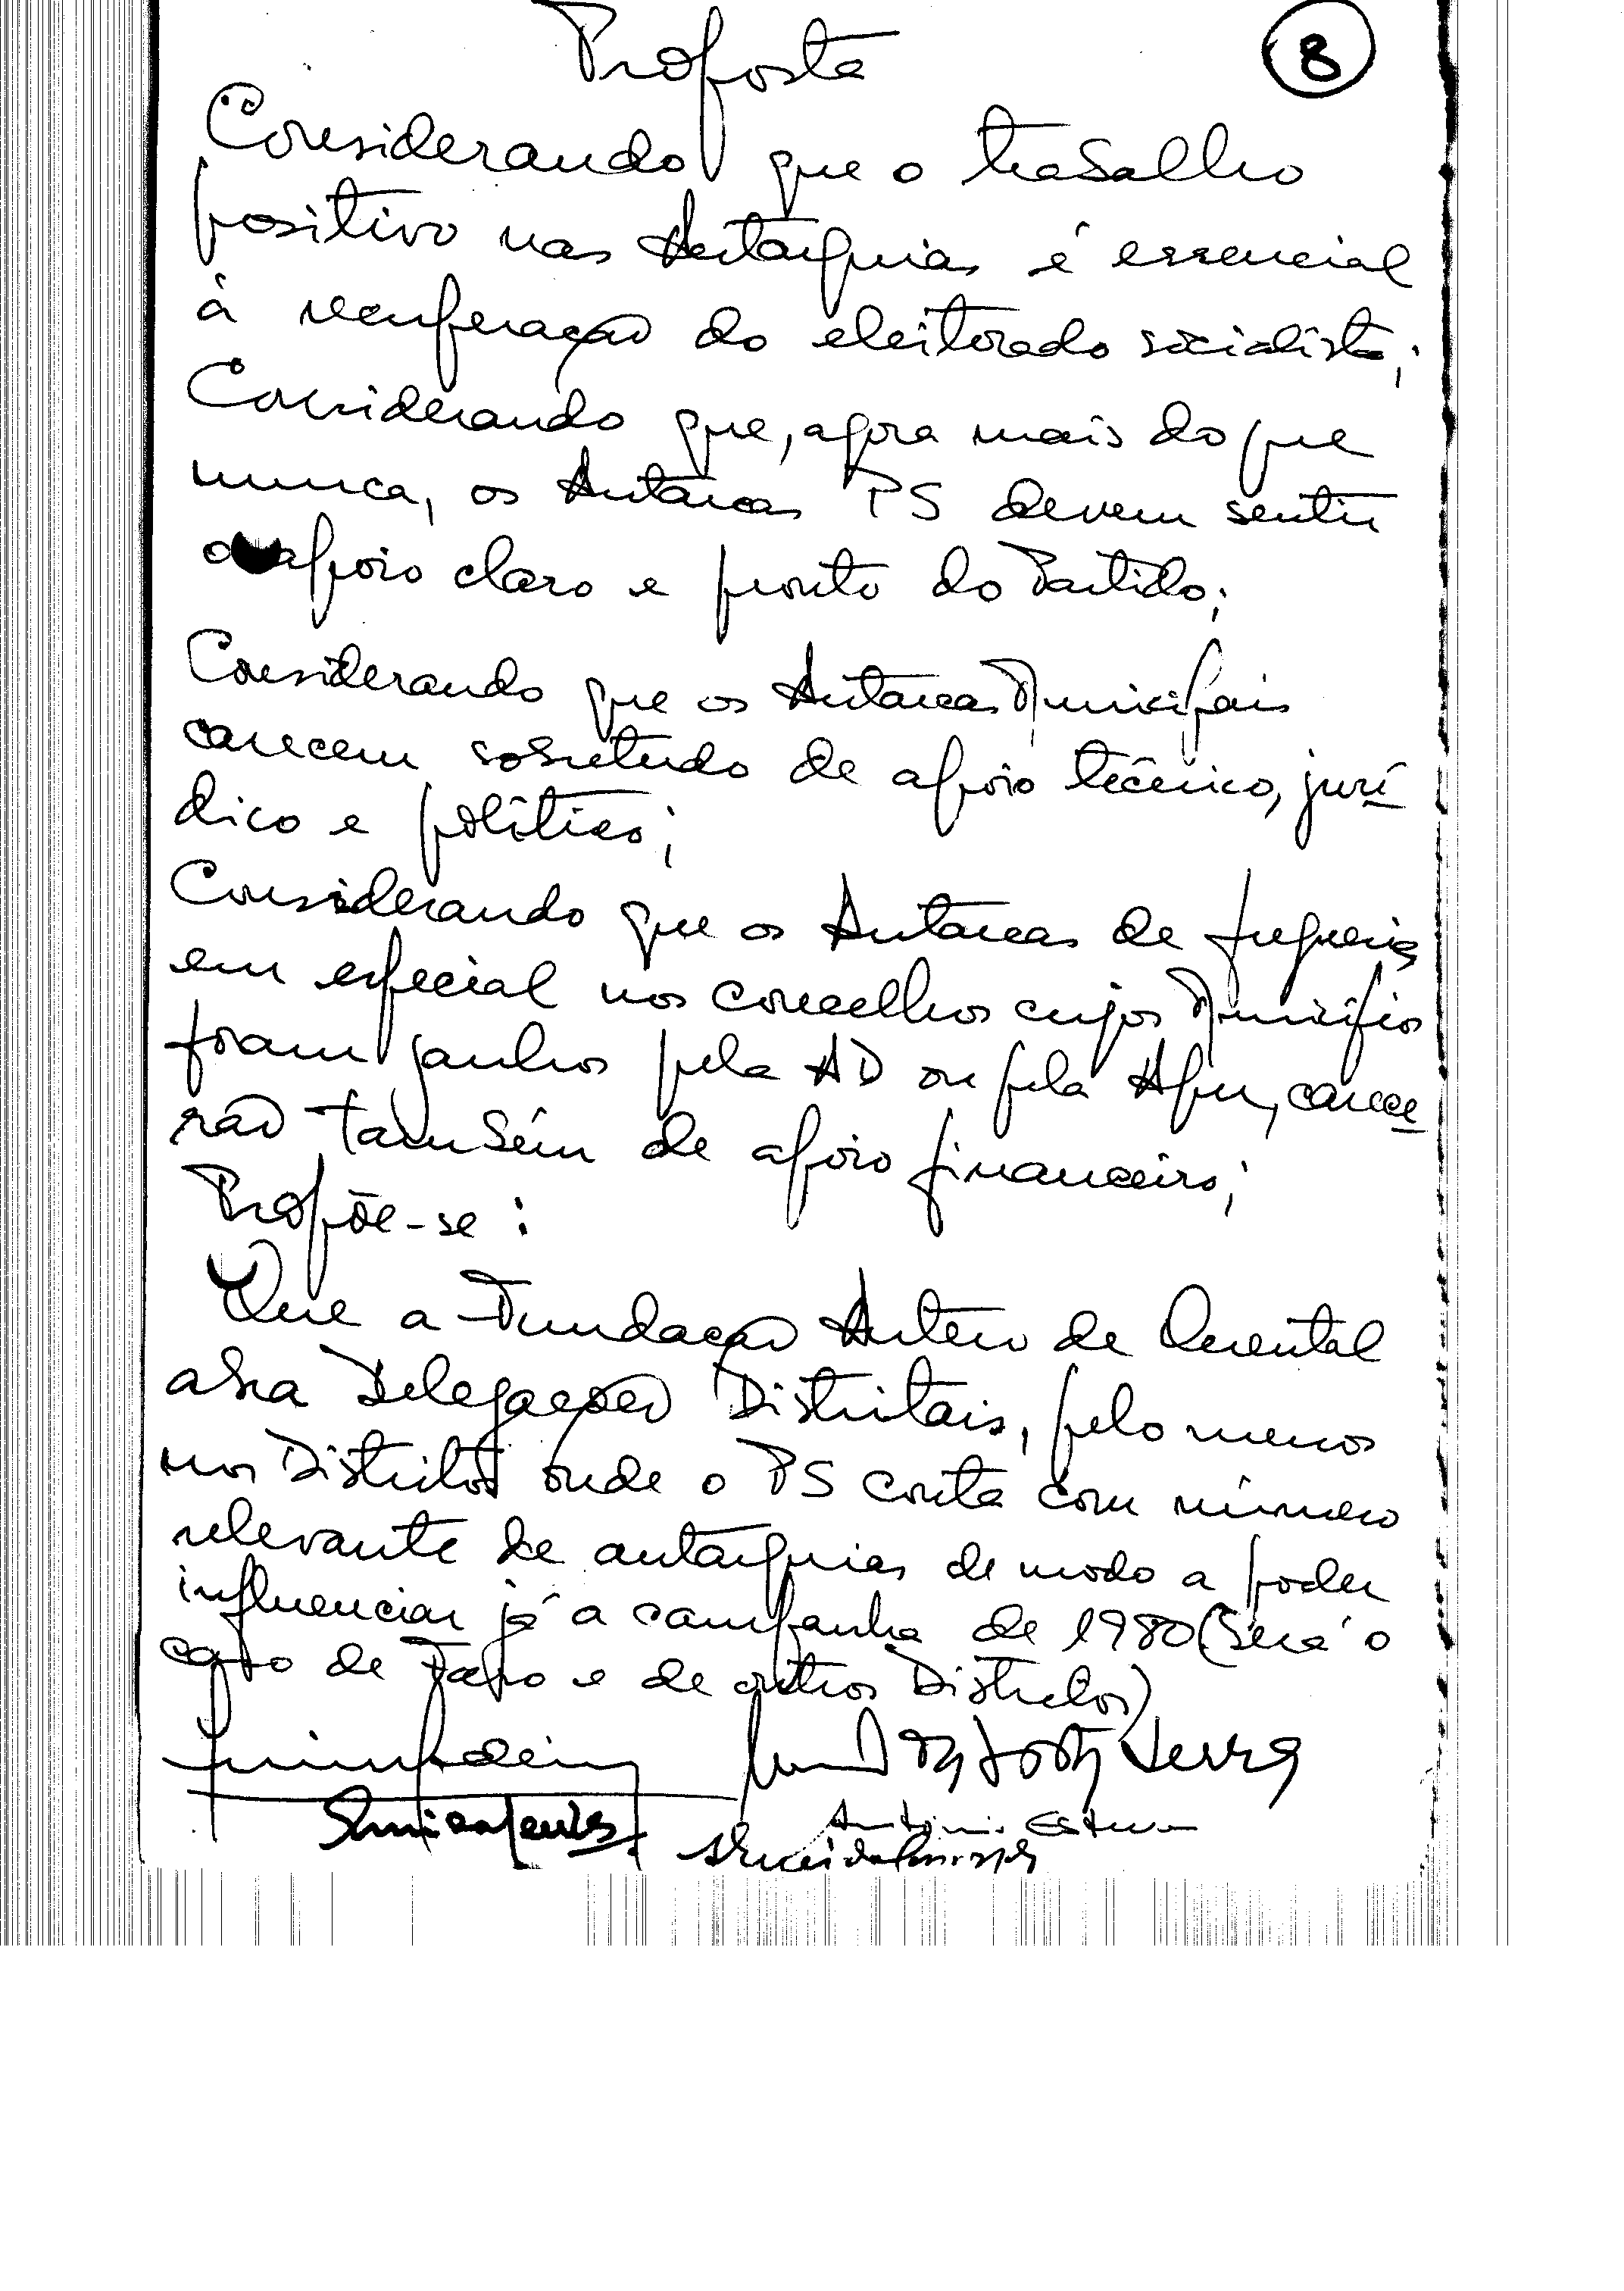 Proposta
8
Considerando que o trabalho
positivo nas Autarquias é essencial
à recuperação do eleitorado socialista;
Considerando que, agora mais do que
nunca, os Autarcas PS devem sentir
o apoio claro e pronto do Partido;
Considerando que os Autarcas Municipais
carecem sobretudo de apoio técnico, jurí
dico e político;
Considerando que os Autarcas de freguesia
em especial nos concelhos cujos Municípios
foram ganhos pela AD ou pela Apu, carece
rão também de apoio financeiro;
Propõe-se:
Que a Fundação Antero de Quental
abra Delegações Distritais, pelo menos
nos Distritos onde o PS conta com número
relevante de autarquias de modo a poder
influenciar já a campanha de 1980 (Será o
caso de Faro e de outros Distritos)
Serra
António Esteves